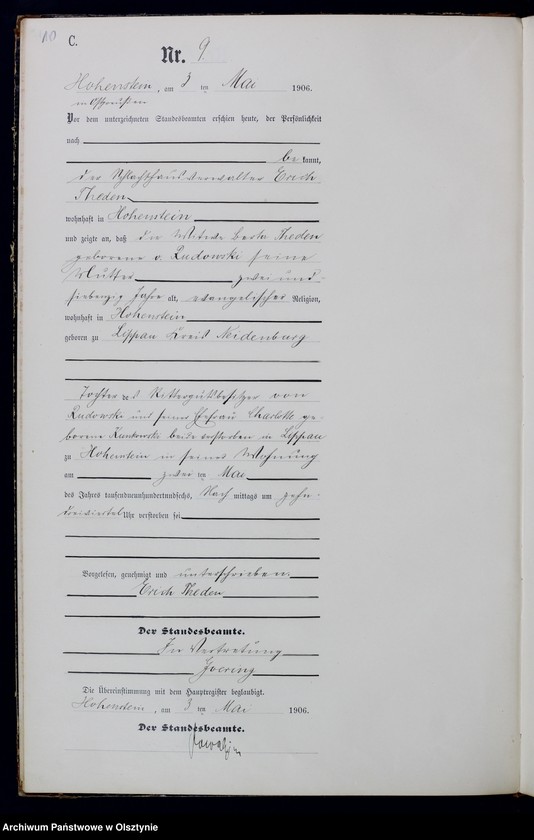 10
C.
Nr. 9.
Hohenstein, am 3 ten Mai 1906.
in Ostpreußen
Vor dem unterzeichneten Standesbeamten erschien heute, der Persönlichkeit
nach
be kannt,
der Schlachthausverwalter Erich
Theden
wohnhaft in Hohenstein
und zeigte an, daß die Witwe Theden
geborene v. Ludowski seine
Mutter zwei und
siebenzig Jahre alt, evangelischer Religion,
wohnhaft in Hohenstein
geboren zu Lippau Kreis Neidenburg
Tochter des Rittergutsbesitzer von
Ludowski und seiner Ehefrau Charlotte ge-
borene beide verstorben in Lippau
zu Hohenstein in seiner Wohnung
am zwei ten Mai
des Jahres tausendneunhundertundsechs, Nach mittags um zehn
dreiviertel Uhr verstorben sei
Vorgelesen, genehmigt und unterschrieben
Erich Theden
Der Standesbeamte.
In Vertretung
Die Übereinstimmung mit dem Hauptregister beglaubigt.
Hohenstein, am 3 ten Mai 1906.
Der Standesbeamte.
Archiwum Państwowe w Olsztynie